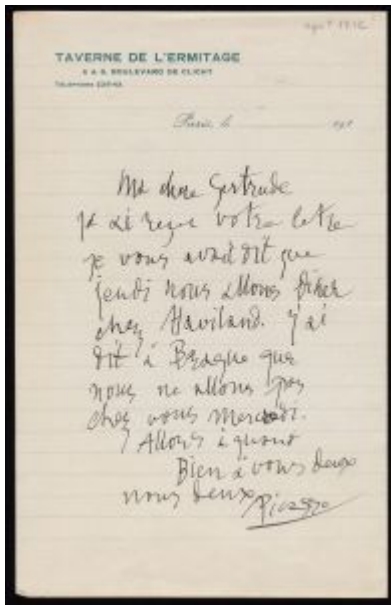 TAVERNE DE L'ERMITAGE
BOULEVARD DE CLICHY
Paris, le 191
Ma chere Gertrude
je ai reçu votre letre
je vous avait dit que
jeudi nous allons diner
chez Haviland. J'ai
dit à Braque que
nous ne allons pas
chez vous mercredi.
Allors à quand
Bien à vous deux
nous deux
Picasso